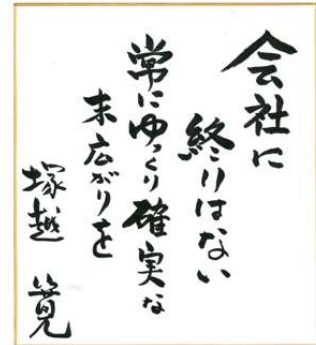 会社に
終りはない
常にゆっくり確実な
末広がりを
塚越 寛